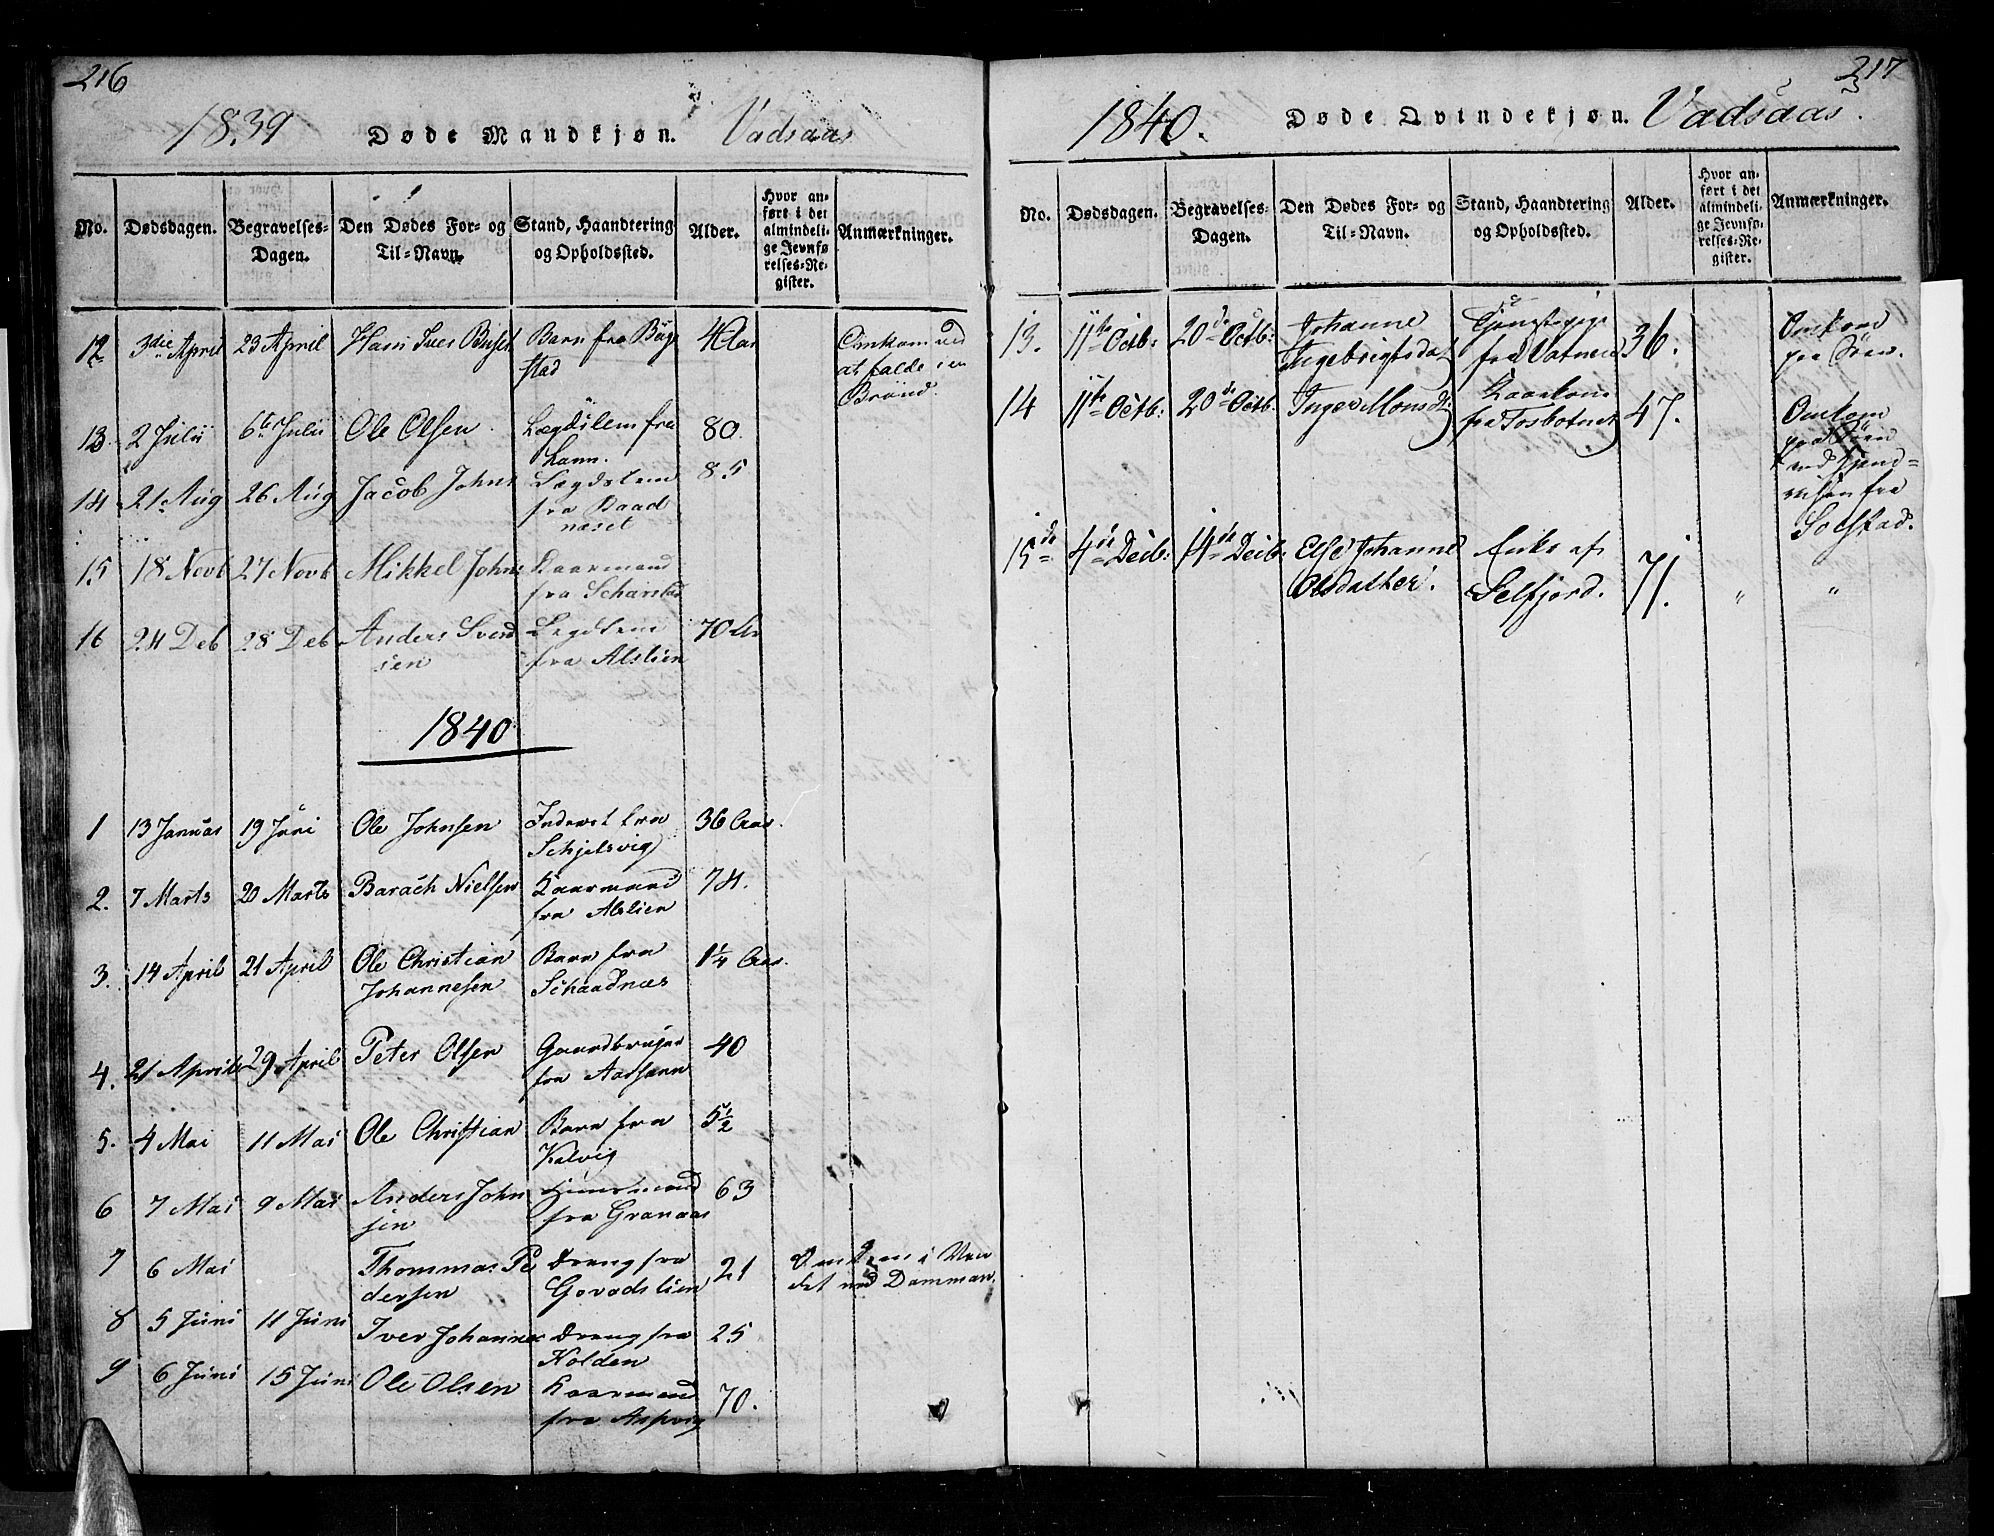 216
1839 Døde Mandkjøn. Vadsaas
No. Dødsdagen. Begravelses-Dagen. Den Dødes For- og Til-Navn. Stand, Haandtering og Opholdssted. Alder. Hvor anført i det almindelige Jevnførelses-Register. Anmærkninger.
12 3die April 23 April Hans Iver Barn fra 4 Aar Omkom ved
stad at falde i en
Brønd.
13 2 Julii 6te Julii Ole Olsen Lægdslem fra 80
Lann.
14 21 Aug 26 Aug Jacob Johns Lægdslem 85
fra Baad
næset
15 18 Novb 27 Novb Mikkel Johns Kaarmand
fra
16 24 Deb 28 Deb Anders Svend Legdslem 70 Aar
sen fra Alslien
1840
1 13 Januar 19 Juni Ole Johnsen Inderst fra 36 Aar.
Schjelsvig
2. 7 Marts 20 Marts Barach Nielsen Kaarmand 74.
fra Alslien
3. 14 April 21 April Ole Christian Barn fra 1¼ Aar.
Johannesen Schaadnæs
4. 21 April 29 April Peter Olsen Gaardbruger 40
fra Aarsann
5. 4 Mai 11 Mai Ole Christian Barn fra 5½
Kalvig
6 7 Mai 9 Mai Anders John Huusmand 63
sen fra Granaas
7 6 Mai Thommas Pe Dreng fra 21 Omkom i Van
dersen Govadslien det ved Damman.
8 5 Juni 11 Juni Iver Johannes Dreng fra 25
Holden
9 6 Juni 15 Juni Ole Olsen Kaarmand 70.
fra Aspvig
217
1840. Døde Qvindekjøn. Vadsaas.
No. Dødsdagen. Begravelses-Dagen. Den Dødes For- og Til-Navn. Stand, Haandtering og Opholdssted. Alder. Hvor anført i det almindelige Jevnførelses-Register. Anmærkninger.
13. 11te Octb: 20de Octb: Johanne Tjenstepige 36. Omkom
Ingebrigtsdat fra Vatned paa Søen.
14 11te Octb: 20de Octb. Inger Monsd: Kaarkone 47. Omkom
fra Tosbotnet paa Søen
ved Hjem=
reisen fra
Solstad.
15de 4de Decb: 14de Decb: Else Johanne Enke af 71. " "
Olsdatter. Selfjord.